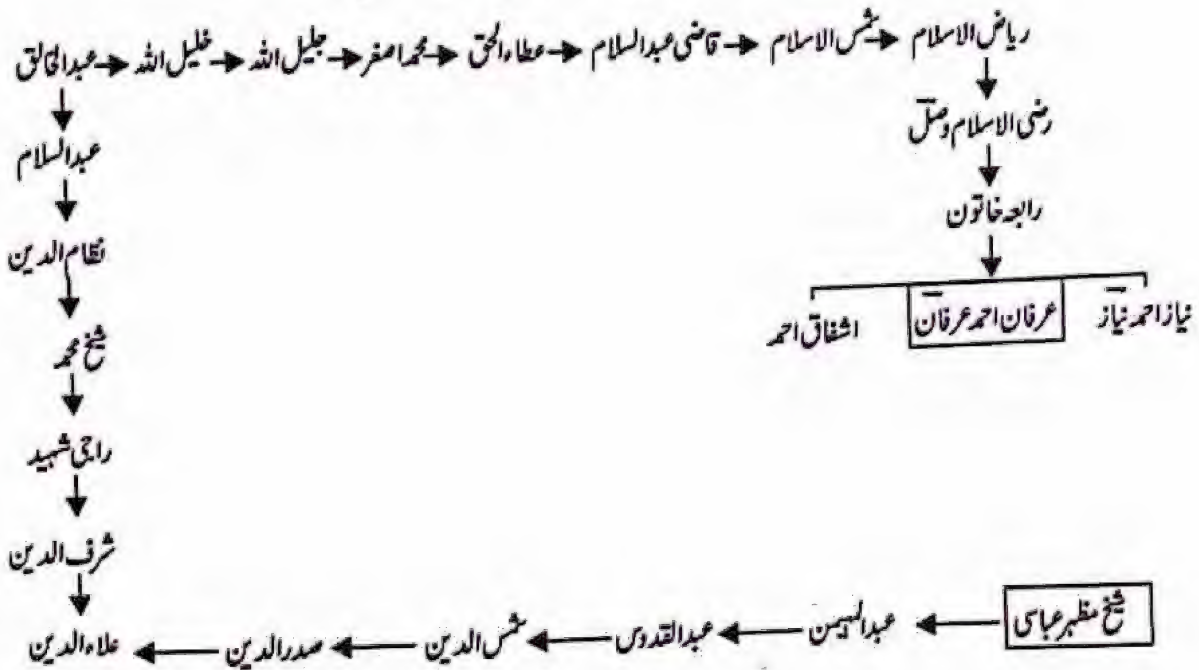 ریاض الاسلام → شمس الاسلام → قاضی عبدالسلام → عطاء الحق → محمد اصغر → جلیل اللہ → خلیل اللہ → عبدالخالق
رضی الاسلام وصل
عبدالسلام
رابعہ خاتون
نظام الدین
نیاز احمد نیاز عرفان احمد عرفان اشفاق احمد
شیخ محمد
راجی شہید
شرف الدین
شیخ مظہر عباسی ← عبدالہیمن ← عبدالقدوس ← شمس الدین ← صدرالدین ← علاءالدین